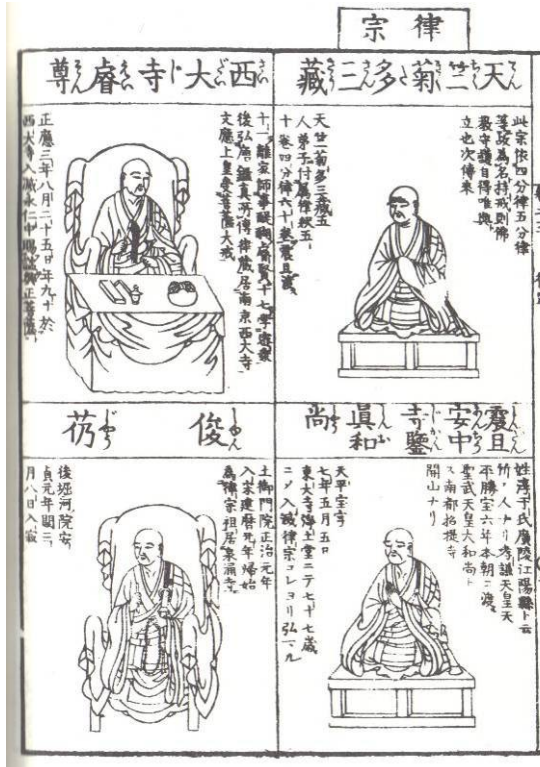 律宗
天竺菊多三藏
てんぢくきくたさんざう
此宗依四分律五分律
等故為名持戒則佛
教守護自得唯興
立也次傳來
天竺菊多三藏五
人弟子付屬律教五
十卷四分律六十
西大寺睿尊
さいだいじえいそん
十一離家師事醍醐
後弘鑑真所傳律藏居南京西大寺
文應上皇受菩薩大戒
正應三年八月二十五日年九十於
西大寺入滅永仁中賜諡興正菩薩
震旦安中寺鑒真和尚
姓淳于氏廣陵江陽縣ト云
所ノ人ナリ孝謙天皇天
平勝宝六年本朝ニ渡
聖武天皇大和尚ト
ス南都招提寺
開山ナリ
天平宝字
七年五月五日
東大寺浄土堂ニテ七十七歳
ニメ入滅律宗コレヨリ弘マル
俊芿
土御門院正治元年
入宋建暦元年帰始
為律宗祖居泉涌寺
後堀河院安
貞元年閏三
月八日入寂